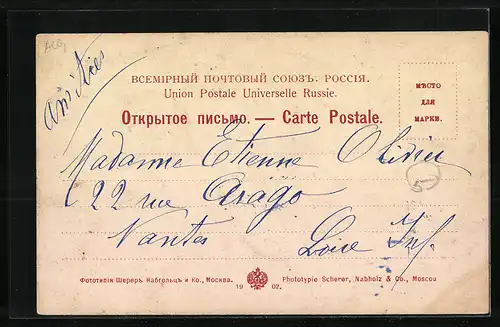 Amitiés
ВСЕМІРНЫЙ ПОЧТОВЫЙ СОЮЗЪ. РОССІЯ.
Union Postale Universelle Russie.
Открытое письмо. — Carte Postale.
МѢСТО
ДЛЯ
МАРКИ.
Madame Etienne Olivier
22 rue Arago
Nantes Loire Inf.
5
Фототипія Шереръ, Набгольцъ и Ко., Москва.
1902.
Phototypie Scherer, Nabholz & Co., Moscou